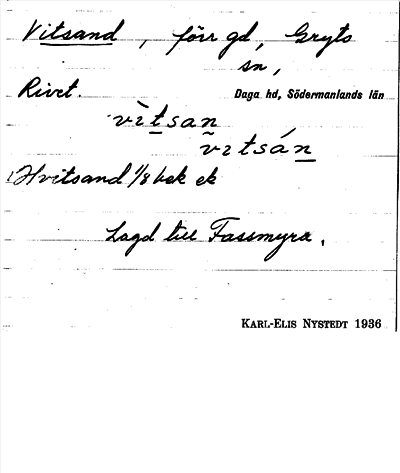 Vitsand, förr gd, Gryts
sn,
Rivet. Daga hd, Södermanlands län
vìtsan
vıtsán
Hvitsand 1/8 bek ek
Lagd till Fassmyra.
KARL-ELIS NYSTEDT 1936